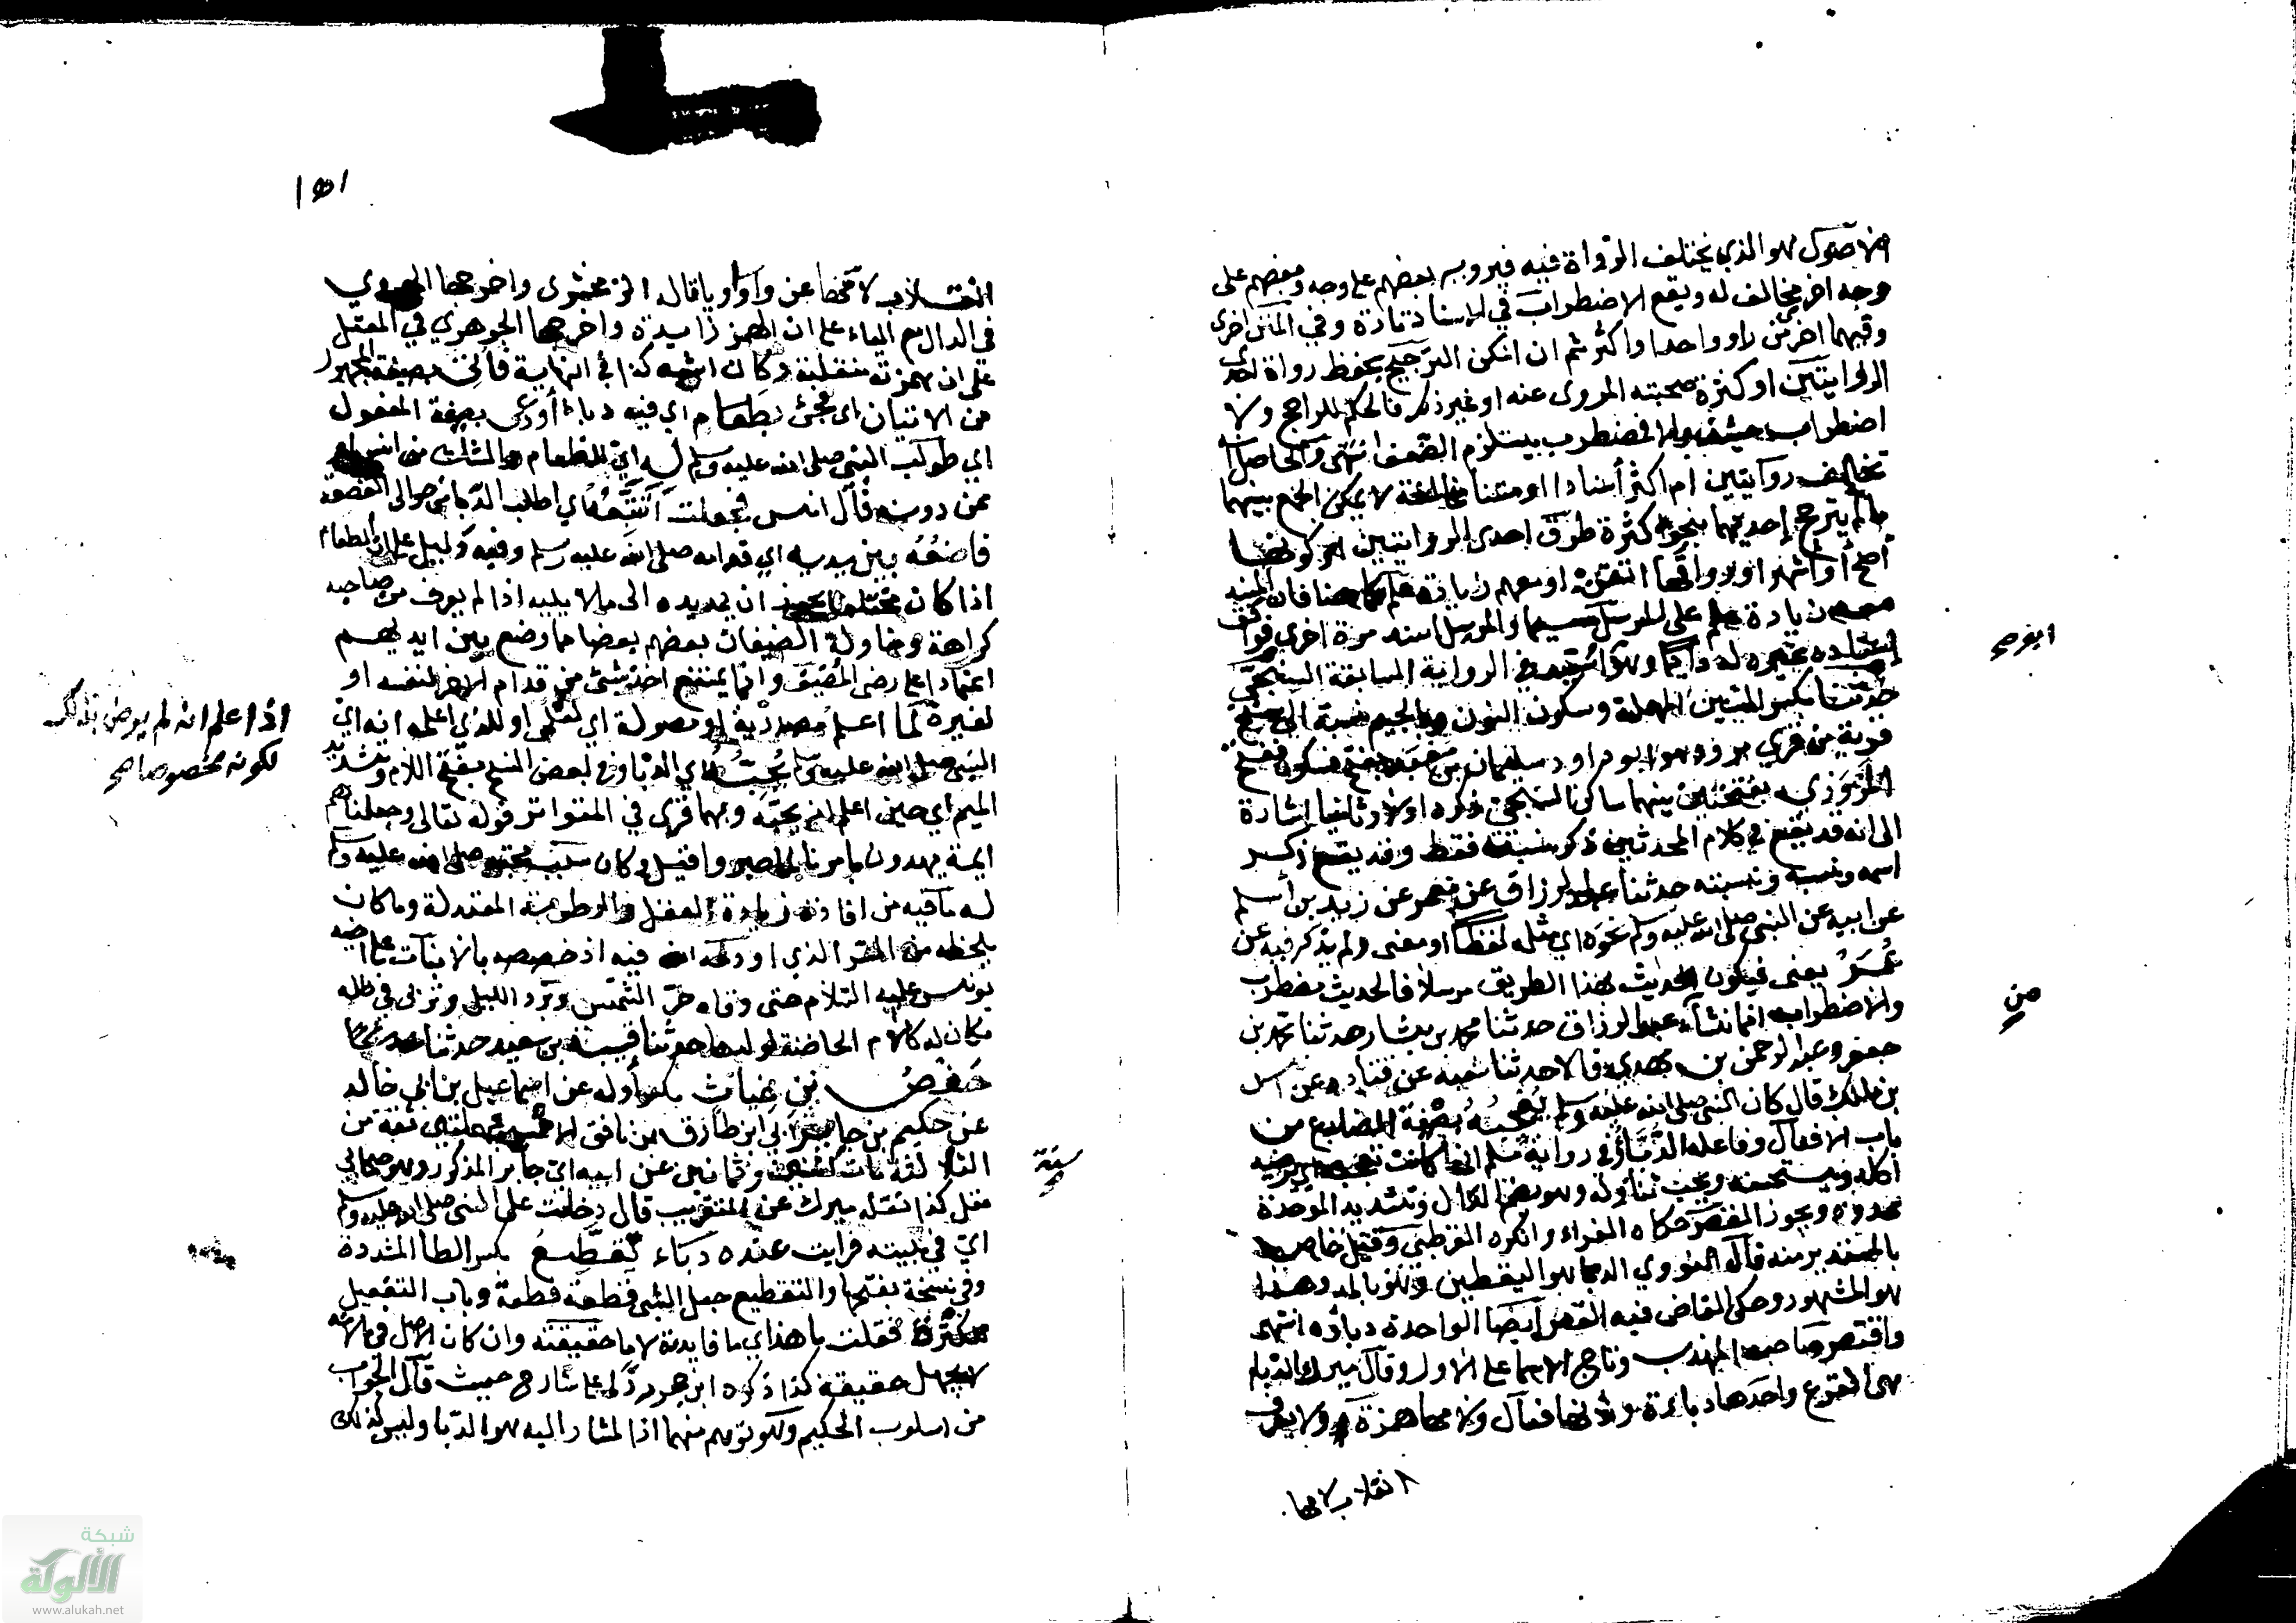 الاصول هو الذي يختلف الرواة فيه فيرويه بعضهم على وجه وبعضهم على
وجه اخر مخالف له ويقع الاضطراب في الاسناد تارة وفي المتن اخرى
وفيهما اخرى من راو واحد او اكثر ثم ان امكن الترجيح بحفظ رواة احدى
الروايتين او كثرة صحبته المروى عنه او غير ذلك فالحكم للراجح ولا
اضطراب حينئذ والا فمضطرب يستلزم الضعف انتهى والحاصل ان
تخالف روايتين ام اكثر أسنادا او متنا مخالفة لا يمكن الجمع بينهما
مالم يترجح إحديهما بنحو كثرة طرق احدى الروايتين او كونها
أصح أو أشهر او رواتها اتقن او معهم زيادة علم كما هنا فان المسند
معه زيادة علم على المرسل سيما والمرسل اسنده مرة اخرى فوافق
إسناده غيره له دايما وهو ابو سعيد في الرواية السابقة السنجي
حدثنا بكسر السين المهملة وسكون النون وبالجيم نسبة الى سنج
قرية من قرى مرو وهو ابو داود سليمان بن معبد بفتح فسكون ففتح
المروزي بفتحتين بينهما ساكن السنجي ذكره اولا وثانيا اشارة
الى انه قد يقع في كلام المحدثين ذكر نسبته فقط وقد يقع ذكر
اسمه ونسبه ونسبته حدثنا عبد الرزاق عن معمر عن زيد بن أسلم
عن ابيه عن النبي صلى الله عليه وسلم نحوه اي مثله لفظا او معنى ولم يذكر فيه عن
عُمَرَ يعني فيكون الحديث بهذا الطريق مرسلا فالحديث مضطرب
والاضطراب انما نشأ من عبد الرزاق حدثنا محمد بن بشار حدثنا محمد بن
جعفر وعبد الرحمن بن مهدي قالا حدثنا شعبة عن قتادة عن انس
بن مالك قال كان النبي صلى الله عليه وسلم يُعْجِبُهُ بصيغة المضارع من
باب الافعال وفاعله الدباء وفي رواية مسلم انها كانت تعجبه اي يرضيه
اكله ويستحسنه ويحب تناوله وهو بضم الدال وتشديد الموحدة
ممدودة ويجوز القصر حكاه الفراء وانكره القرطبي وقيل خاص
بالمستدير منه قال النووي الدبا هو اليقطين وهو بالمد وهذا
هو المشهور وحكى القاضي فيه القصر أيضا الواحدة دباءة انتهى
واقتصر صاحب المهذب وتاج الاسما على الاول وقال ميرك الدباء
هى القرع واحدها دباءة وزنها فعال ولامها همزة ولا يعرف
انقلاب لامها
ابو صح
من
صح
١٥١
انقلاب لامها عن واو او يا قاله الزمخشري واخرجها الهروي
في الدال مع الباء على ان الهمزة زايدة واخرجها الجوهري في المعتل
على ان همزته منقلبة وكان اشبه كذا في النهاية فأتى بصيغة المجهول
من الاتيان اى فجئ بطَعام اي فيه دباء أو دعى بصيغة المفعول
اي طولب النبي صلى الله عليه وسلم له اي للطعام والشك من انس او
ممن دونه قال انس فجعلت أتَتبَّعُهُ اي اطلب الدبا من حوالي القصعة
فاضعُهُ بين يديه اي قدامه صلى الله عليه وسلم وفيه دليل على ان الطعام
اذا كان مختلفا يجوز ان يمد يده الى مالا يليه اذا لم يعرف من صاحبه
كراهة ومناولة الضيفان بعضهم بعضا مما وضع بين ايديهم
اعتمادا على رضى المُضيف وانما يمتنع اخذ شئ من قدام الاخر لنفسه او
لغيره لما اعلم مصدرية او موصولة اي لعلمي او للذي اعلمه انه اي
النبي صلى الله عليه وسلم يُحِبُّهُ اي الدبا وفي بعض النسخ بفتح اللام وتشديد
الميم اي حين اعلم انه يحبه وبهما قرئ في المتواتر قوله تعالى وجعلناهم
ايمة يهدون بامرنا لما صبروا قيل وكان سبب محبته صلى الله عليه وسلم
له ما فيه من افادة زيادة العقل والرطوبة المعتدلة وما كان
يلحظه من السر الذي اودعه الله فيه اذ خصصه بالانبات على اخيه
يونس عليه السلام حتى وقاه حرّ الشمس وبَرْد الليل وتربى في ظله
فكان له كالام الحاضنة لولدها حدثنا قتيبة بن سعيد حدثنا
حَفصُ بن غياث بكسر أوله عن اسماعيل بن أبي خالد
عن حكيم بن جابر أي ابن طارق بن عوف الاحمسي ثقة من
الثالثة مات سنة اثنتين وثمانين عن ابيه اي جابر المذكور وهو صحابي
مقل كذا نقله ميرك عن التقريب قال دخلت على النبي صلى الله عليه وسلم
اي في بيته فرايت عنده دبّاء تُقطّعُ بكسر الطا المشددة
وفي نسخة بفتحها والتقطيع جعل الشئ قطعة قطعة وباب التفعيل
للتكثير فقلت ما هذا اي ما فايدته لا ما حقيقته وان كان الاصل في ما
لا يجهل حقيقته كذا ذكره ابن حجر ردا على شارح حيث قال الجواب
من اسلوب الحكيم ولكونه منهما اذ المشار اليه هو الدبا وليس كذلك
اذا علم انه لم يرض بذلك
لكونه مخصوصا صح
سنة
صح
شبكة
الألوكة
www.alukah.net